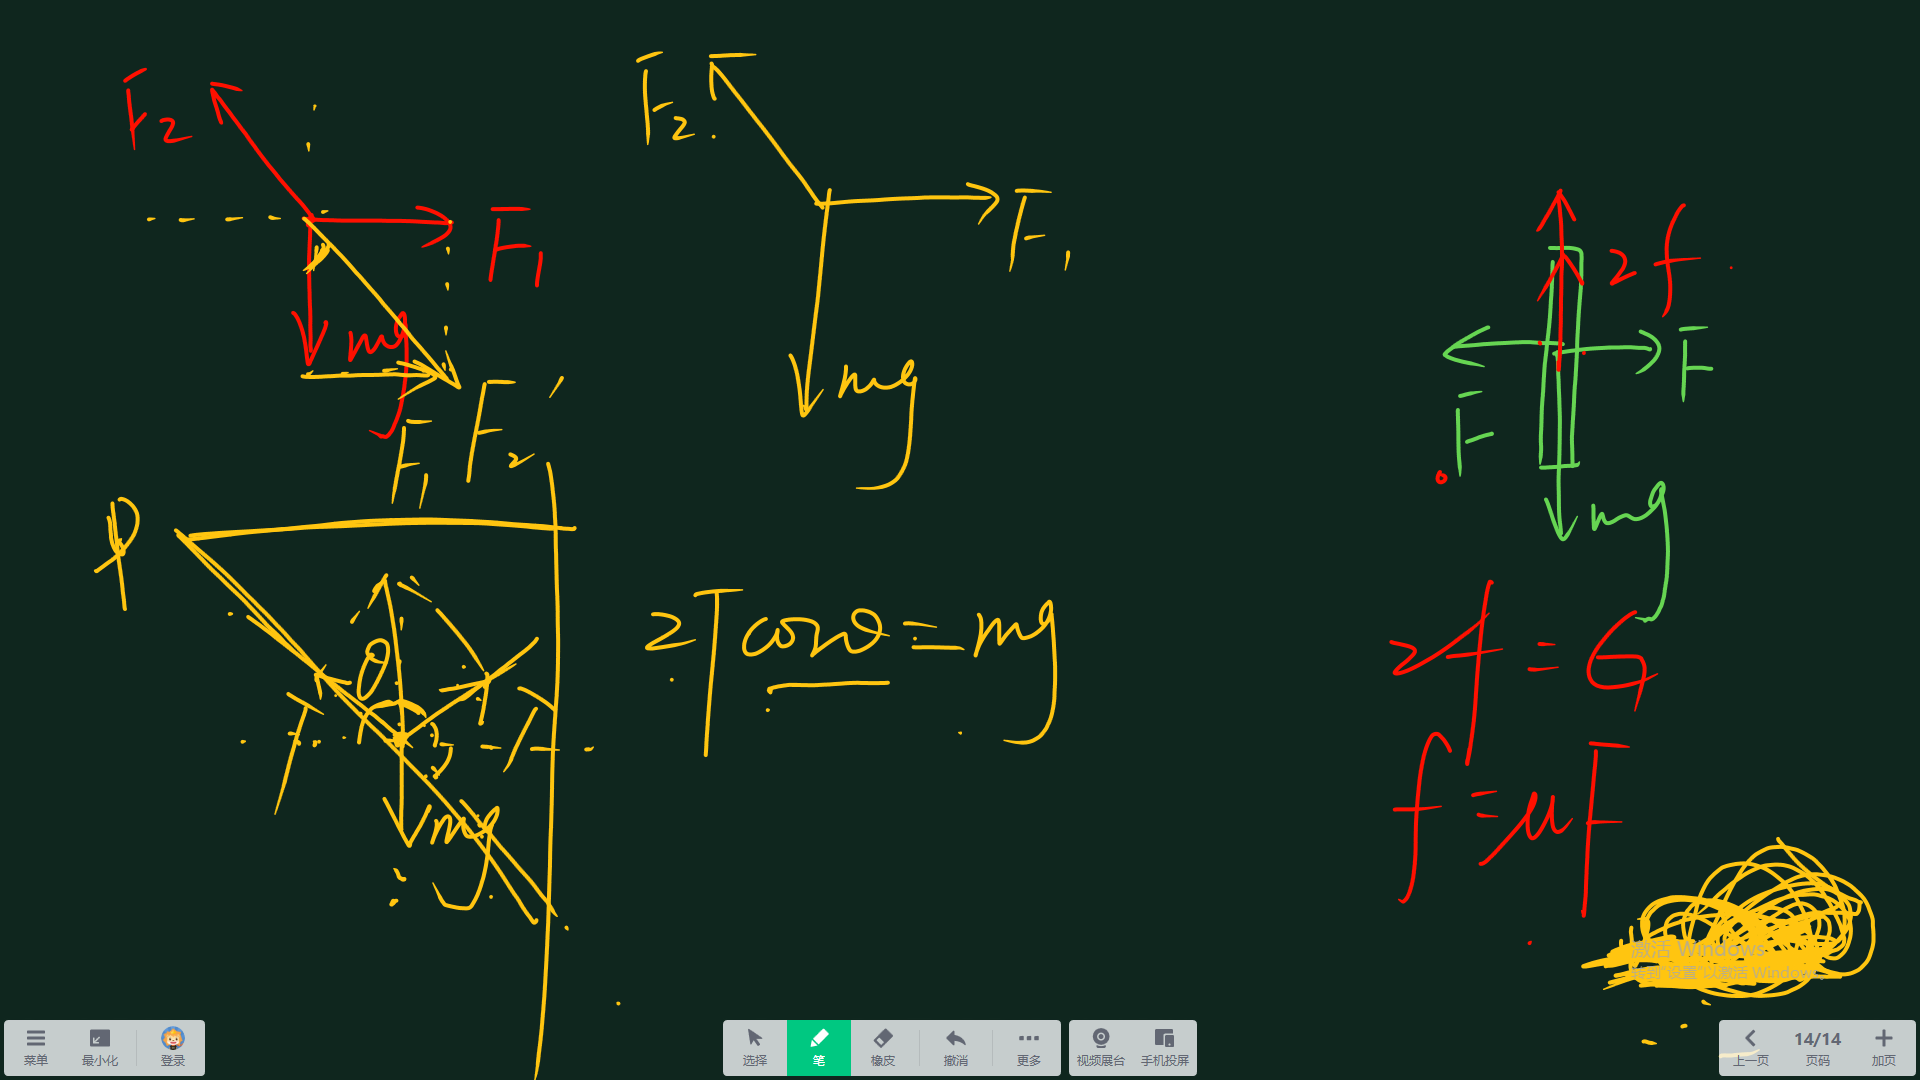 F₂
F₁
mg
F₁
F₂′
F₂
F₁
mg
2f
F
F
mg
P
θ
T
T
mg
2Tcosθ=mg
2f=G
f=μF
激活 Windows
转到"设置"以激活 Windows。
菜单
最小化
登录
选择
笔
橡皮
撤消
更多
视频展台
手机投屏
上一页
14/14
页码
加页